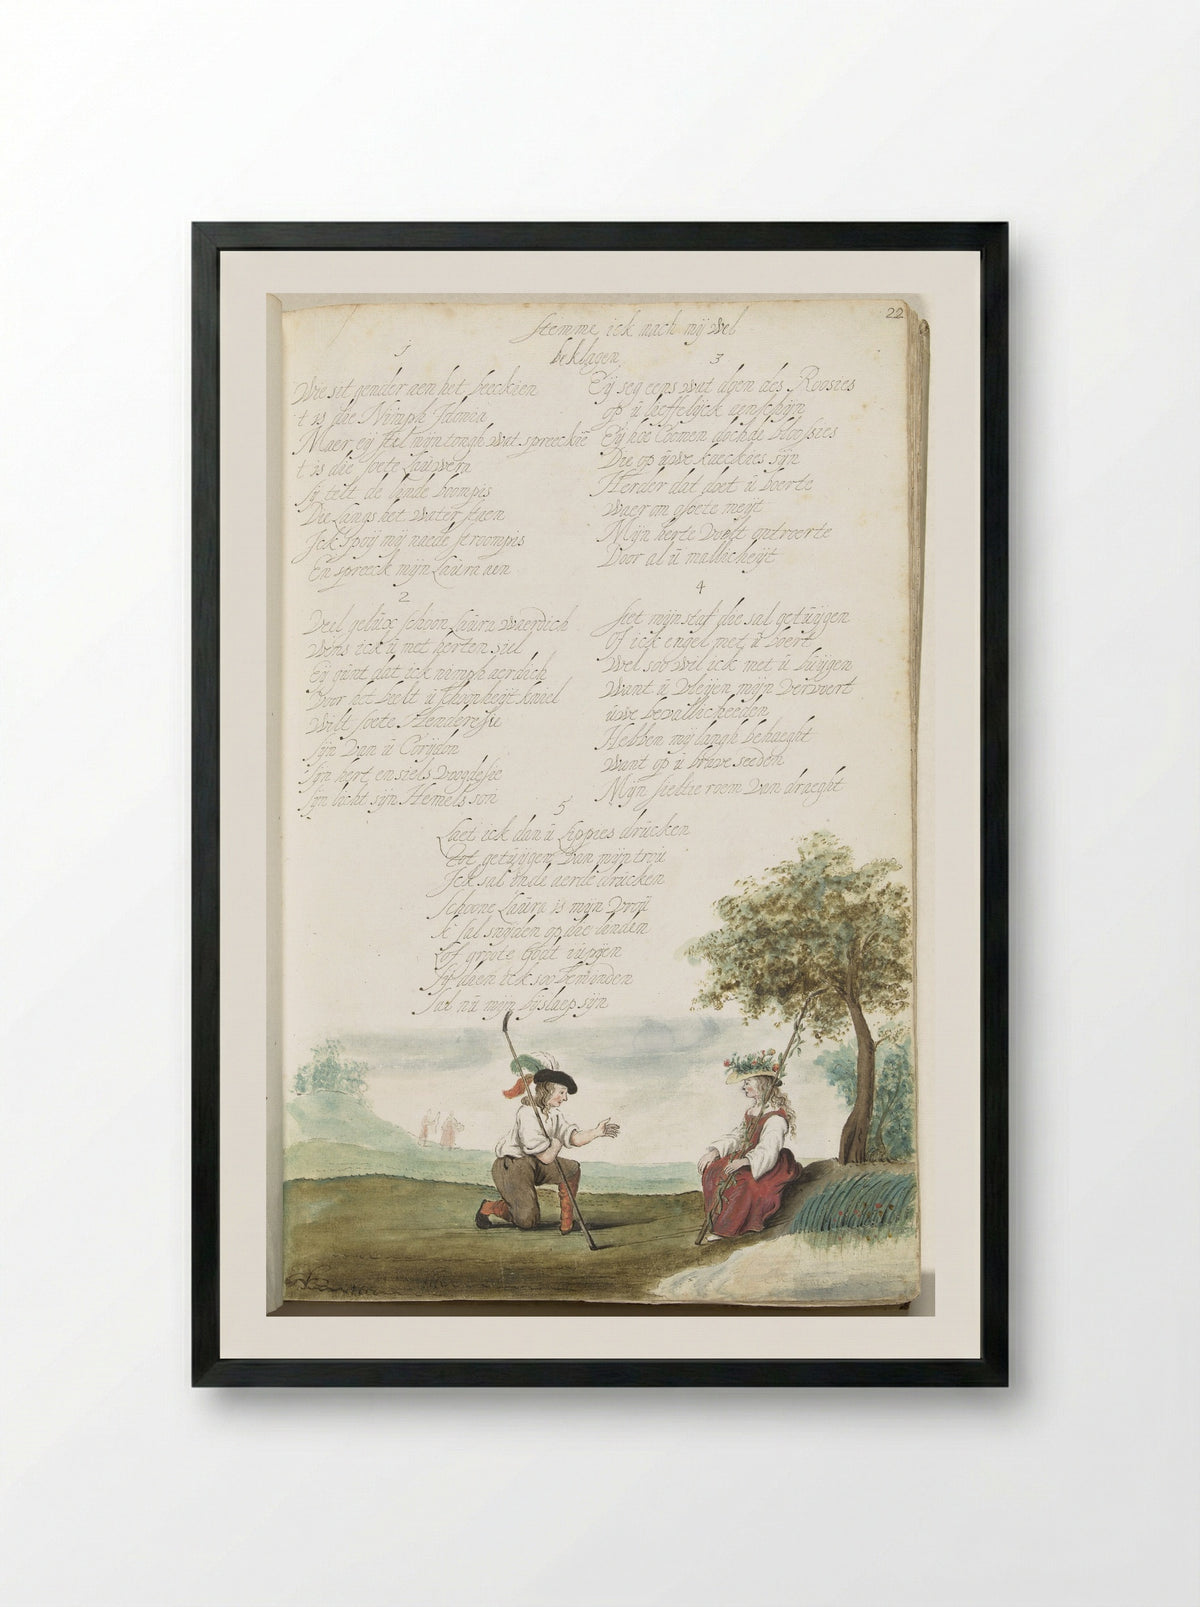 22
Stemme ick mach mij wel
beklagen
1
Wie sit gender aen het beeckien
t is die Nimph
Maer eij stel mijn tongh wat spreeckie
t is die soete Lauwera
sij telt de linde boompis
Die Langs het water staen
Ick spoij mij naede stroompis
En spreeck mijn Laura aen
2
Veel gelux schoon Laura waerdich
Wens ick u met herten
Eij gunt dat ick nimph aerdich
Voor het belt u schoonheijt kniel
Wilt soete Henderesse
sijn van u Corijdon
sijn hert en siels voogdesse
sijn licht sijn Hemels son
3
Eij seg eens wat doen des Roosies
op u lieffelijck aenschijn
Eij hoe Coomen dochde bloosies
Die op uwe kaeckies sijn
Herder dat doet u boerte
waer om soete meijt
Mijn herte wordt ontroerte
Door al u mallicheijt
4
siet mijn staf die sal getuijgen
Of ick engel met u boert
Wel soo wel ick met u buijgen
Want u vleijen mijn vervoert
uwe bevallicheeden
Hebben mij langh behaeght
want op u brave seeden
Mijn sieltie roem van draeght
5
Laet ick dan u Lippies drucken
tot getuijgen van mijn trou
Ick sal onde aerde drucken
schoone Laura is mijn vrou
ik sal snijden op die linden
Lof groote Godt
sij dien ick soo beminden
sal nu mijn bijslaep sijn